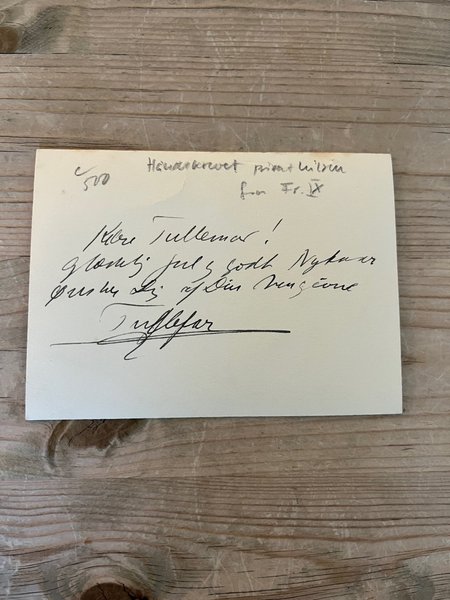 500
Håndskrevet privat hilsen
fra Fr. IX
Kære Tullemor!
Glædelig Jul og godt Nytaar
Ønskes Dig af Din hengivne